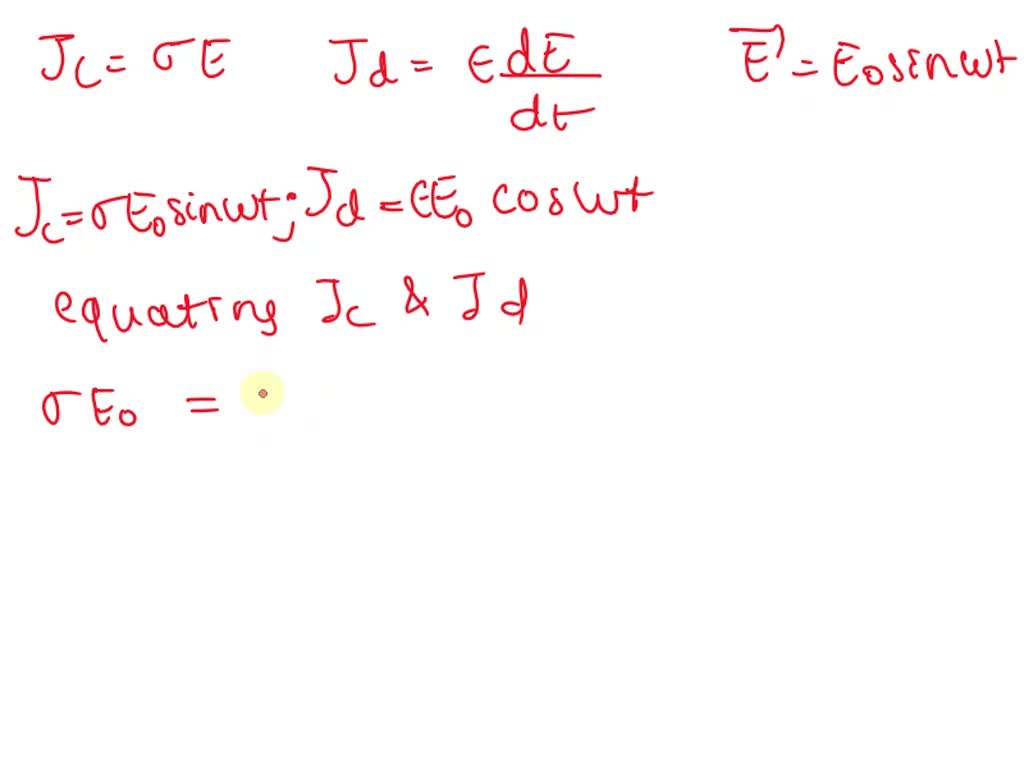 J_c = σE J_d = ϵ dE/dt E⃗ = E₀ sinωt
J_c = σE₀ sinωt ; J_d = ϵE₀ cosωt
equating J_c & J_d
σE₀ =